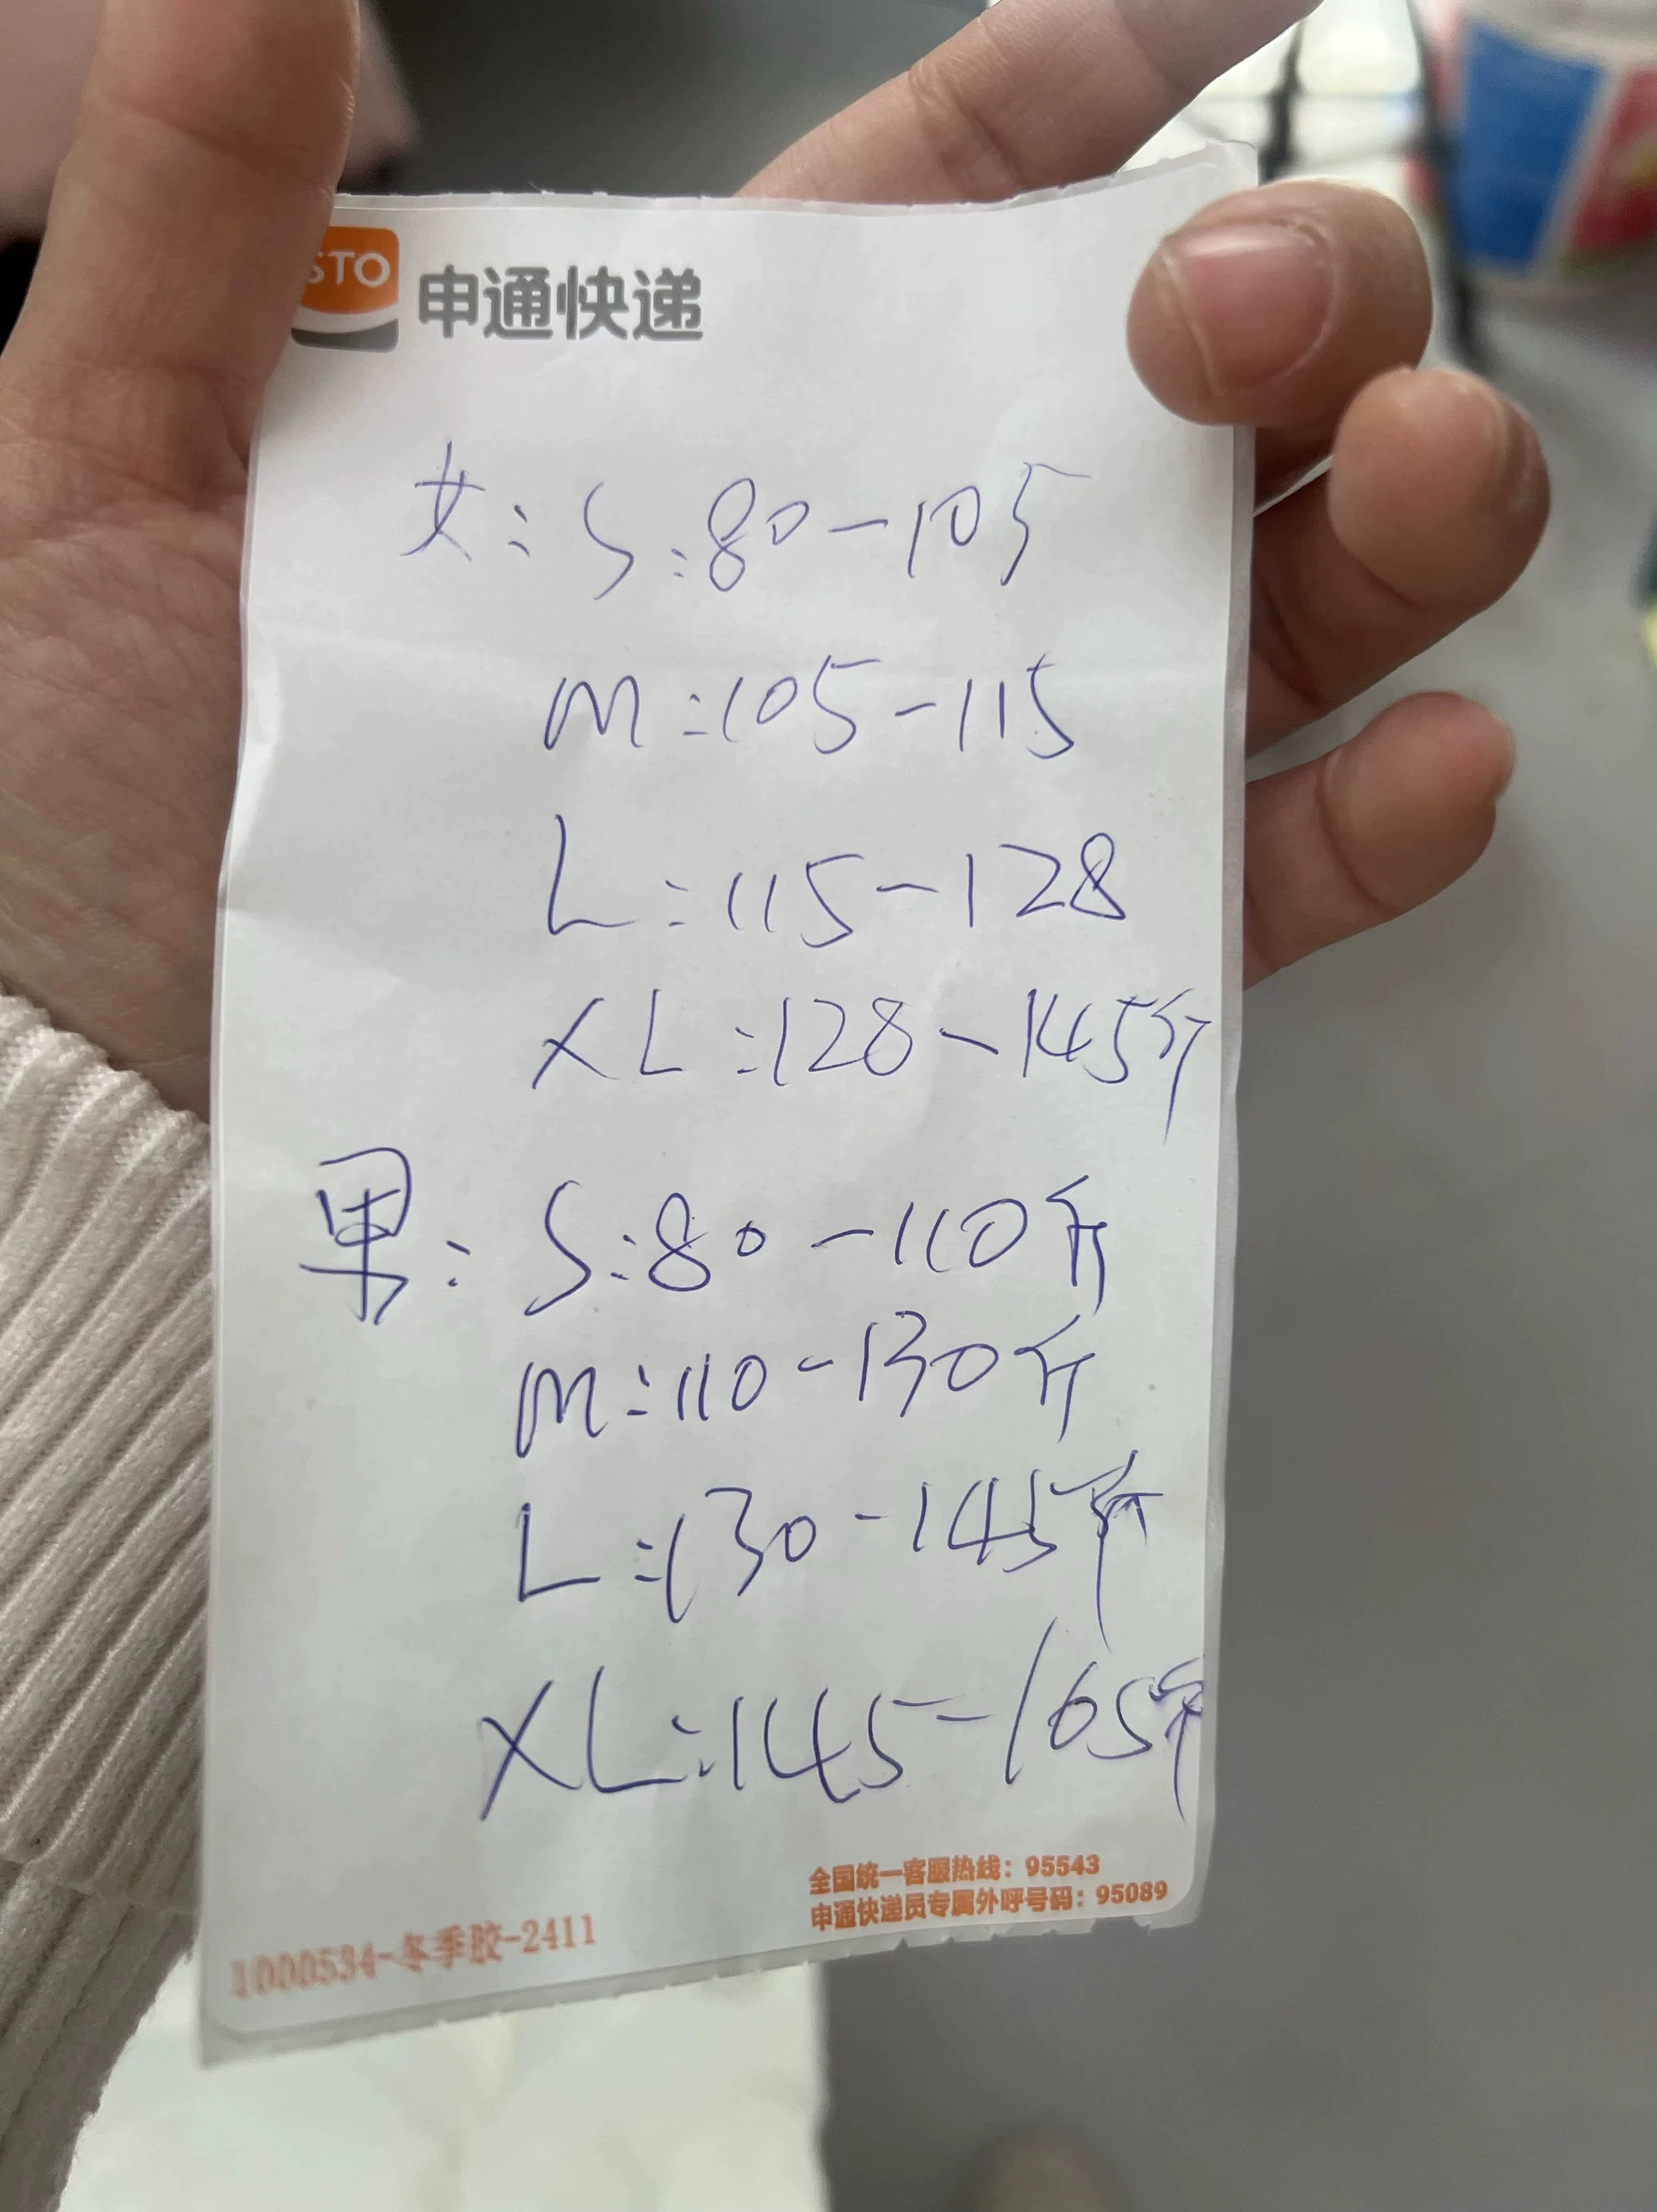 STO 申通快递
女:S:80-105
M:105-115
L:115-128
XL:128-145斤
男:S:80-110斤
M:110-130斤
L:130-145斤
XL:145-165斤
全国统一客服热线：95543
申通快递员专属外呼号码：95089
1000534-冬季胶-2411